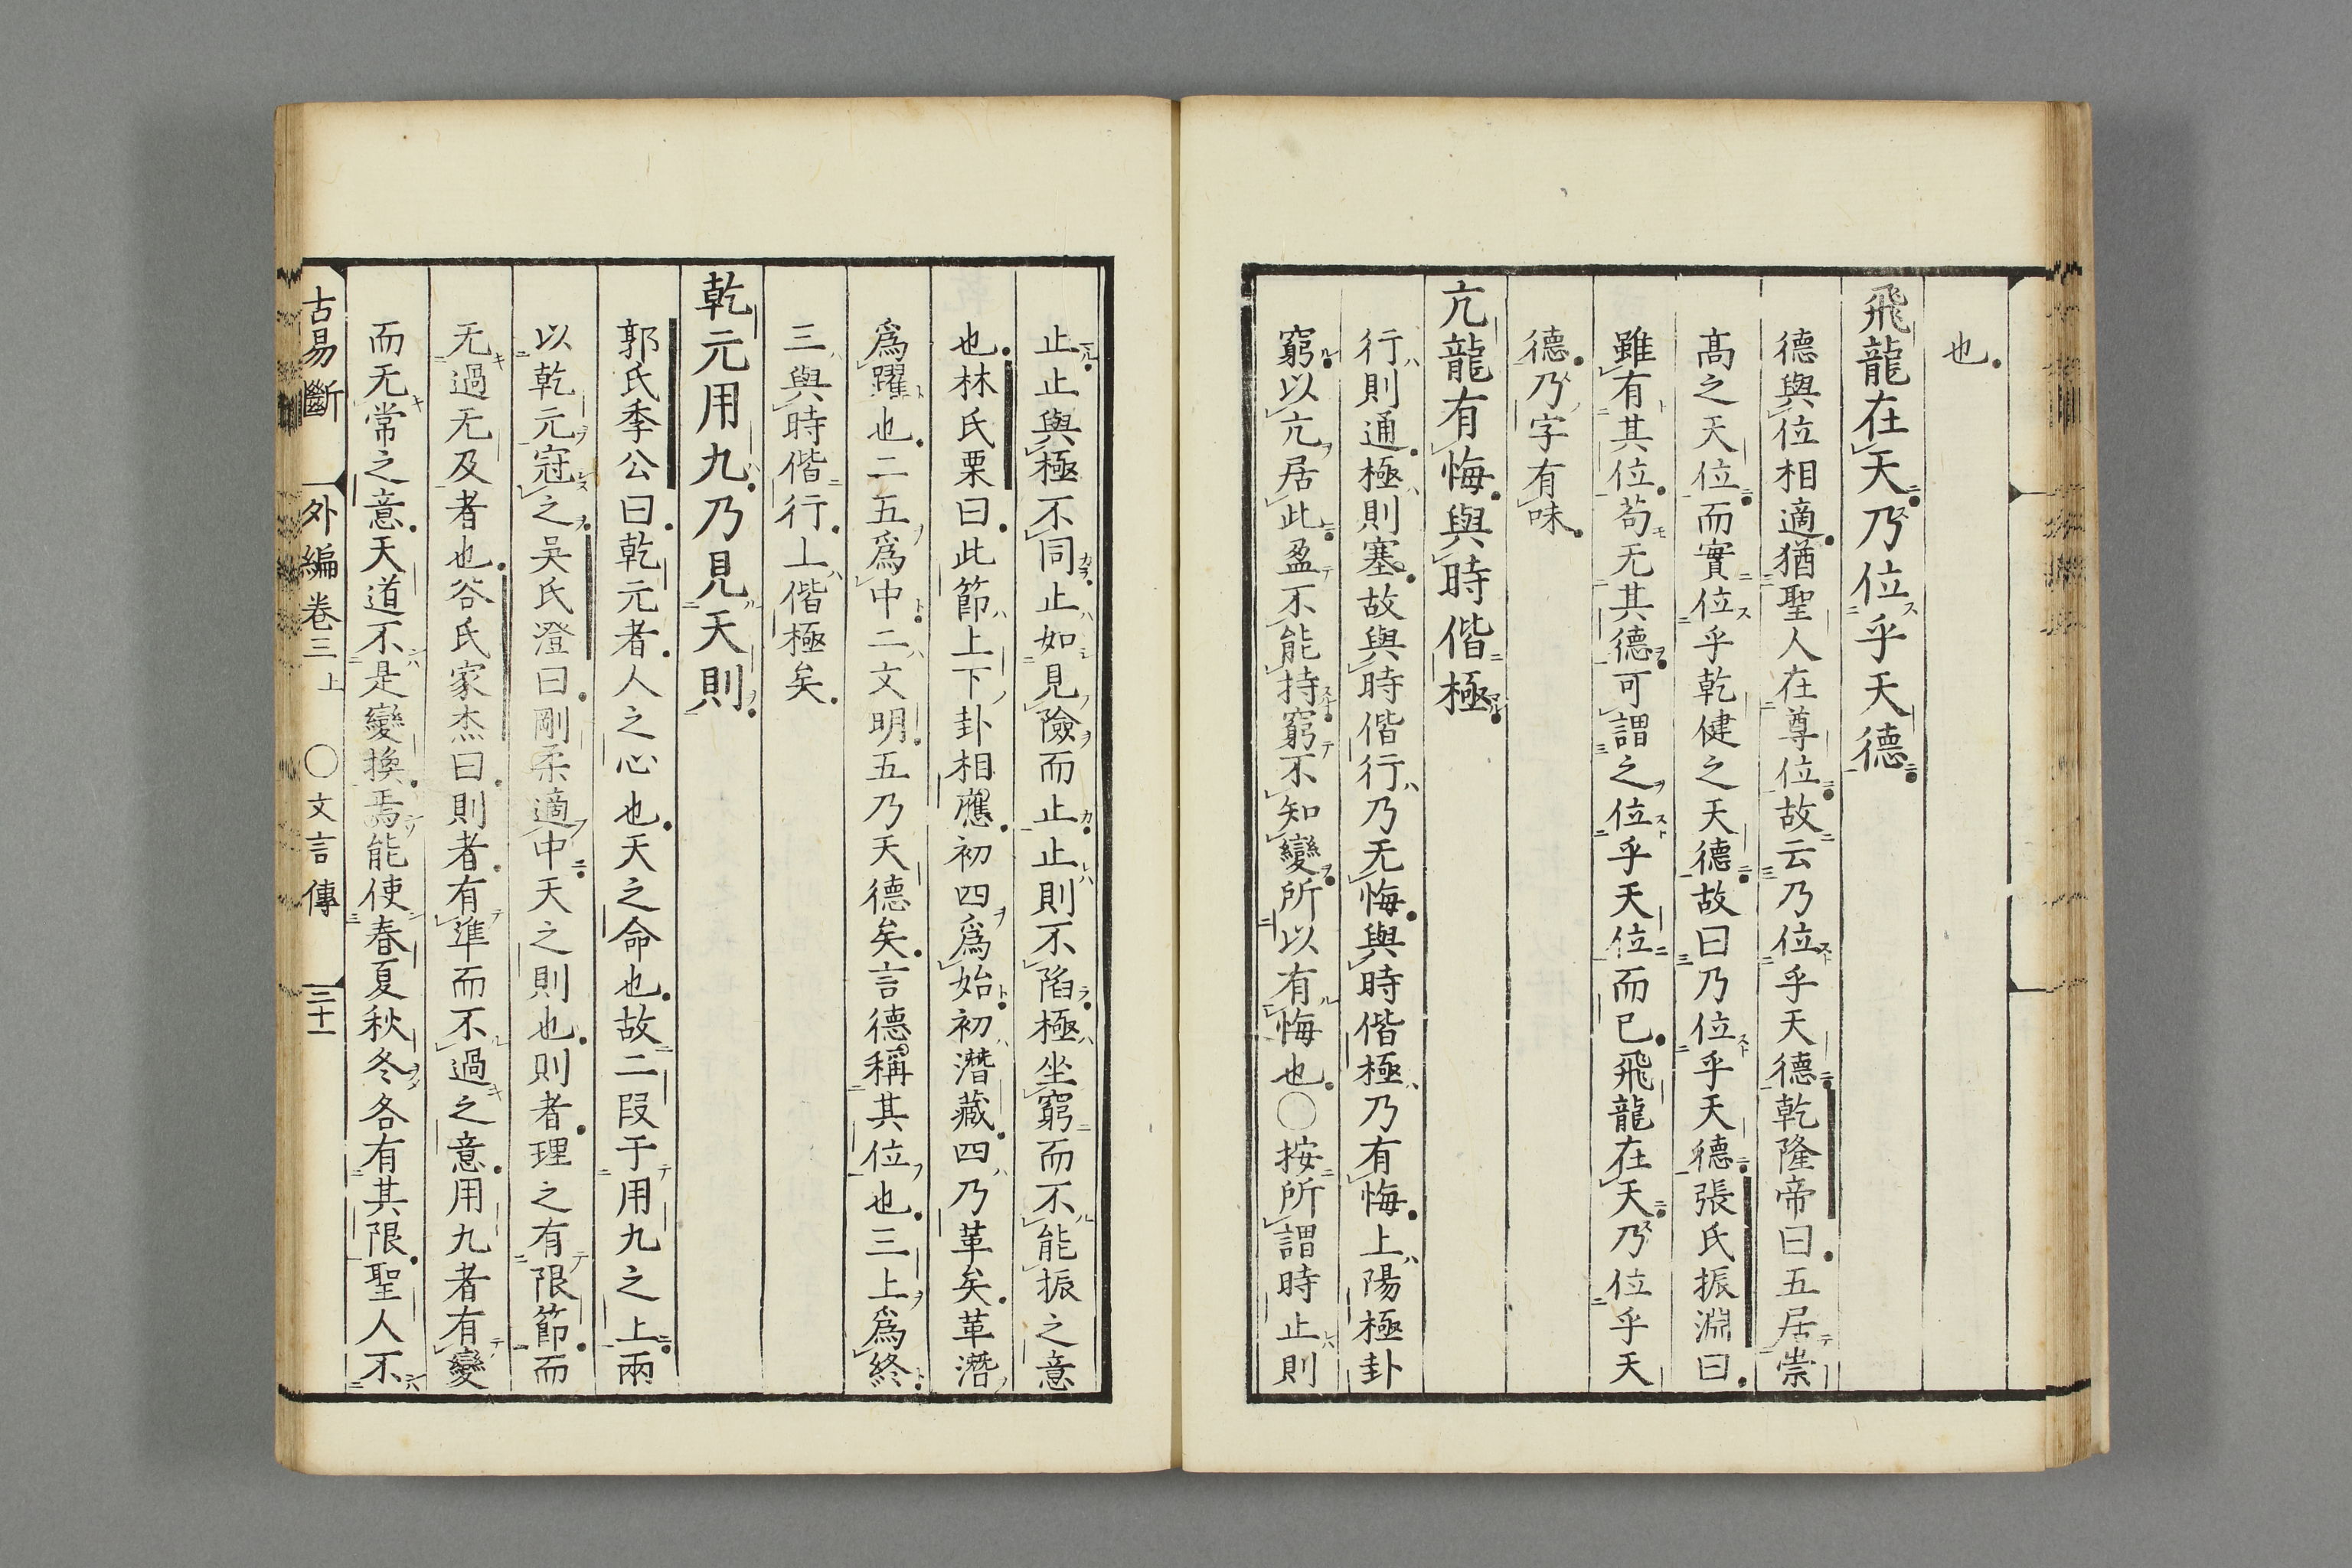 也
飛龍在天乃位乎天德
德與位相適猶聖人在尊位故云乃位乎天德乾隆帝曰五居崇
髙之天位而實位乎乾健之天德故曰乃位乎天德張氏振淵曰
雖有其位苟无其德可謂之位乎天位而已飛龍在天乃位乎天
德乃字有味
亢龍有悔與時偕極
行則通極則塞故與時偕行乃无悔與時偕極乃有悔上陽極卦
窮以亢居此盈不能持窮不知變所以有悔也○按所謂時止則
止止與極不同止如見險而止止則不陷極坐窮而不能振之意
也林氏栗曰此節上下卦相應初四爲始初潛藏四乃革矣革潛
爲躍也二五爲中二文明五乃天德矣言德稱其位也三上爲終
三與時偕行上偕極矣
乾元用九乃見天則
郭氏季公曰乾元者人之心也天之命也故二段于用九之上兩
以乾元冠之吳氏澄曰剛柔適中天之則也則者理之有限節而
无過无及者也谷氏家杰曰則者有準而不過之意用九者有變
而无常之意天道不是變換焉能使春夏秋冬各有其限聖人不
古易斷 外編卷三上 ○文言傳 三十一